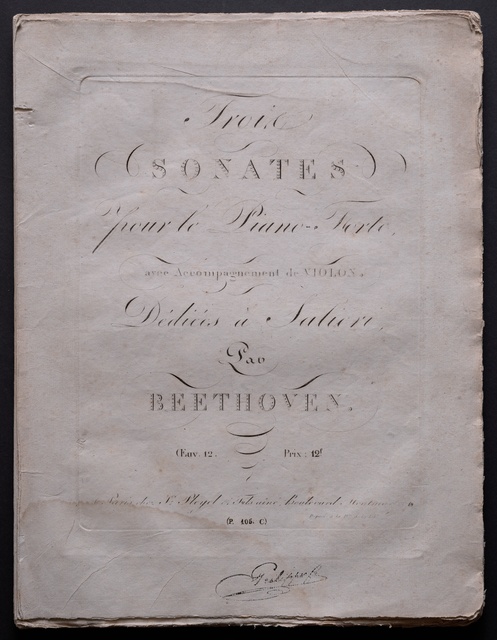 Trois
SONATES
pour le Piano-Forte,
avec Accompagnement de VIOLON,
Dédiées à Salieri,
Par
BEETHOVEN.
Œuv. 12. Prix: 12f
Paris chez I. Pleyel Boulevard
(P. 105. C)